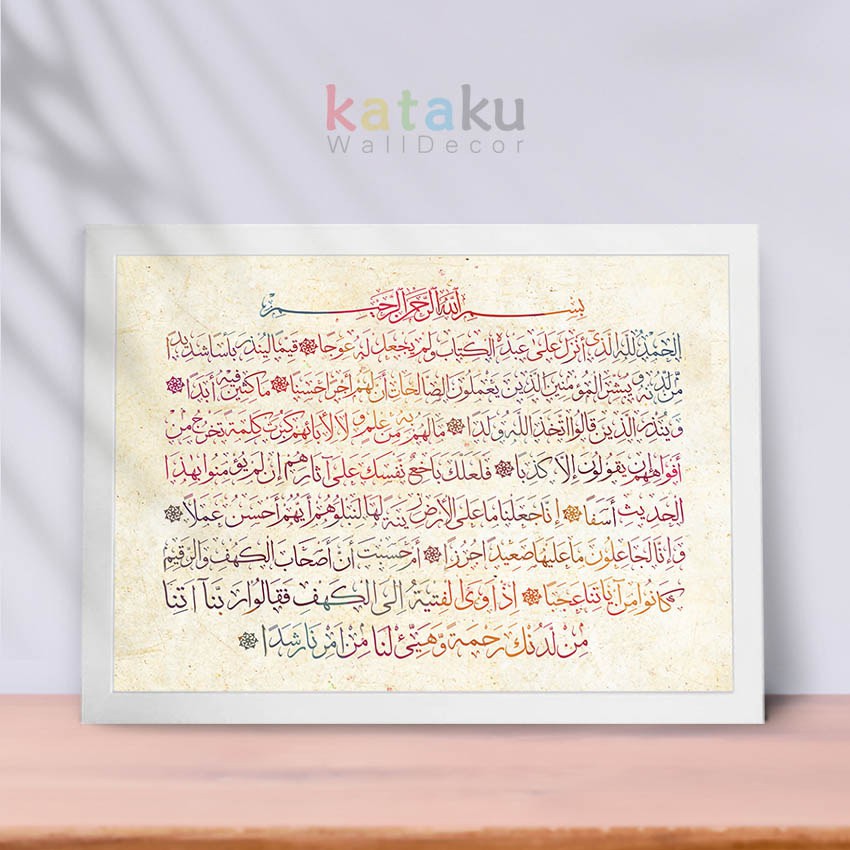 kataku
WallDecor
بسم الله الرحمن الرحيم
الحمد لله الذي أنزل على عبده الكتاب ولم يجعل له عوجا ۞ قيما لينذر بأسا شديدا
من لدنه ويبشر المؤمنين الذين يعملون الصالحات أن لهم أجرا حسنا ۞ ماكثين فيه أبدا ۞
وينذر الذين قالوا اتخذ الله ولدا ۞ مالهم به من علم ولا لآبائهم كبرت كلمة تخرج من
أفواههم إن يقولون إلا كذبا ۞ فلعلك باخع نفسك على آثارهم إن لم يؤمنوا بهذا
الحديث أسفا ۞ إنا جعلنا ما على الأرض زينة لها لنبلوهم أيهم أحسن عملا ۞
وإنا لجاعلون ما عليها صعيدا جرزا ۞ أم حسبت أن أصحاب الكهف والرقيم
كانوا من آياتنا عجبا ۞ إذ أوى الفتية إلى الكهف فقالوا ربنا آتنا
من لدنك رحمة وهيئ لنا من أمرنا رشدا ۞